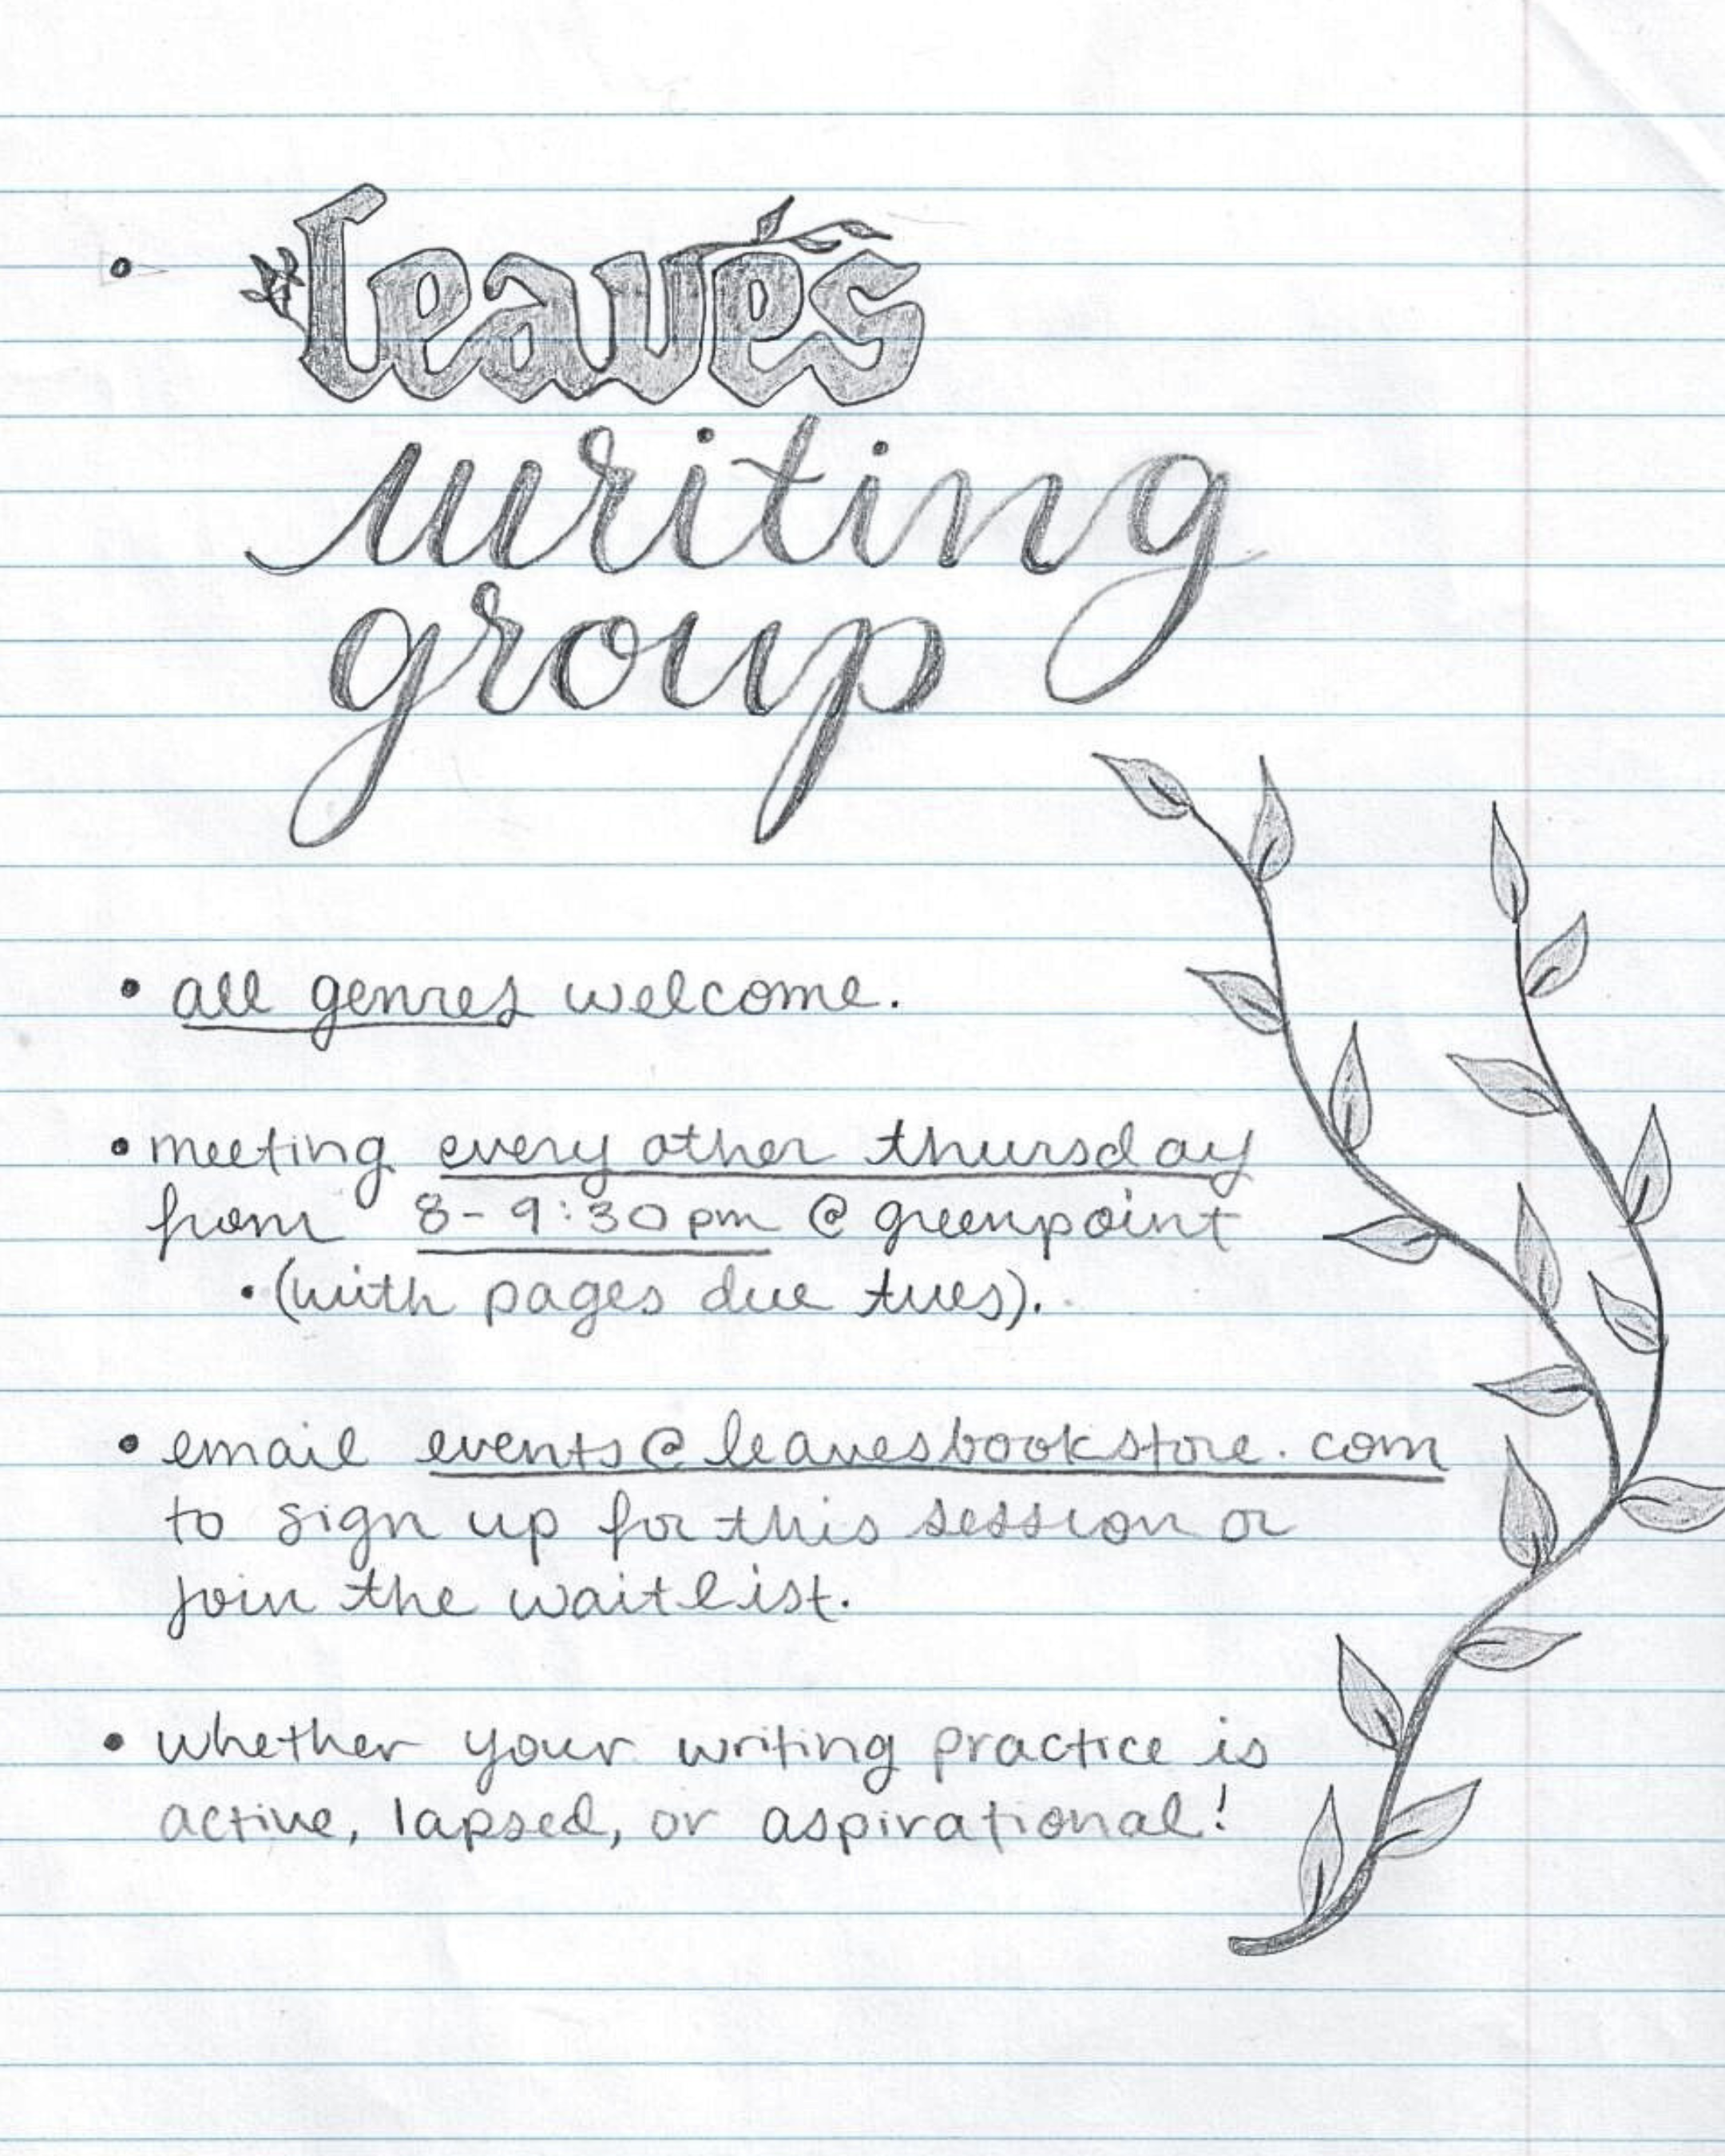 • leaves
writing
group
• all genres welcome.
• meeting every other thursday
from 8-9:30pm @ greenpoint
• (with pages due tues).
• email events@leavesbookstore.com
to sign up for this session or
join the waitlist.
• whether your writing practice is
active, lapsed, or aspirational!